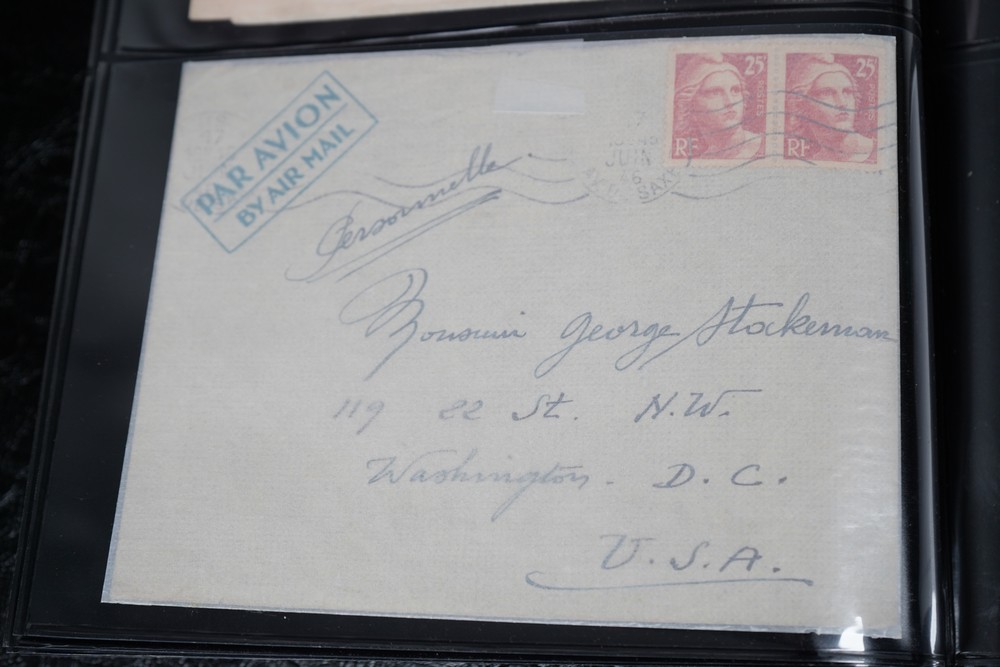 PAR AVION
BY AIR MAIL
25F
RF
25F
RF
JUIN
46
SAXE
Personnelle
Monsieur George Stockeman
119 22 St. N.W.
Washington. D. C.
U.S.A.